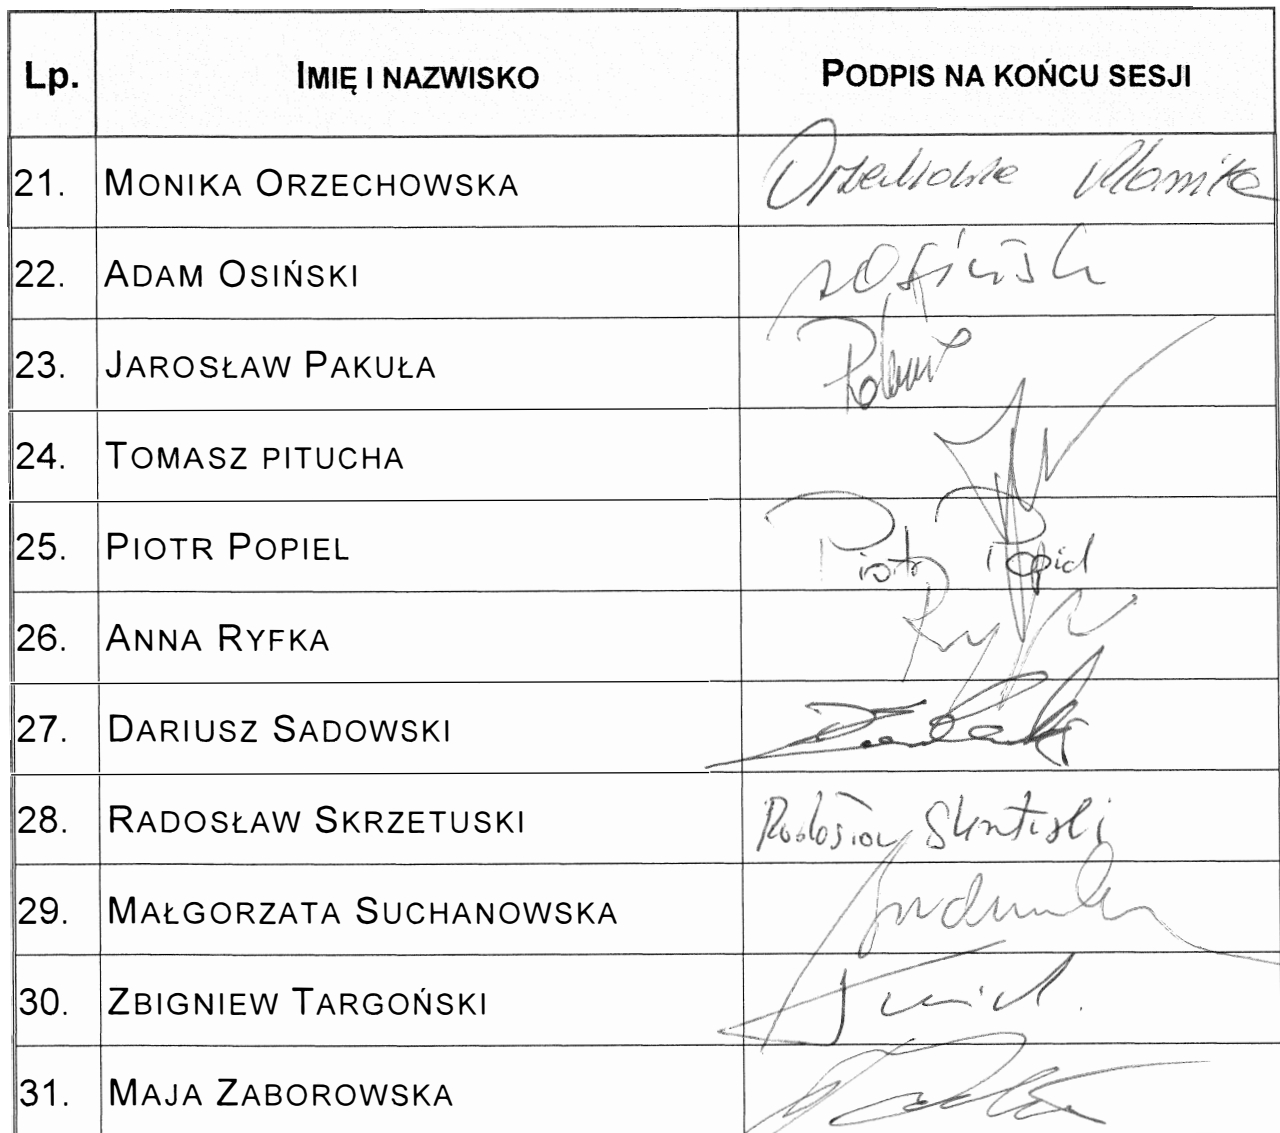 Lp. IMIĘ I NAZWISKO PODPIS NA KOŃCU SESJI
21. MONIKA ORZECHOWSKA Orzechowska Monika
22. ADAM OSIŃSKI AOsiński
23. JAROSŁAW PAKUŁA
24. TOMASZ PITUCHA
25. PIOTR POPIEL Piotr Popiel
26. ANNA RYFKA
27. DARIUSZ SADOWSKI
28. RADOSŁAW SKRZETUSKI Radosław Skrzetuski
29. MAŁGORZATA SUCHANOWSKA
30. ZBIGNIEW TARGOŃSKI
31. MAJA ZABOROWSKA